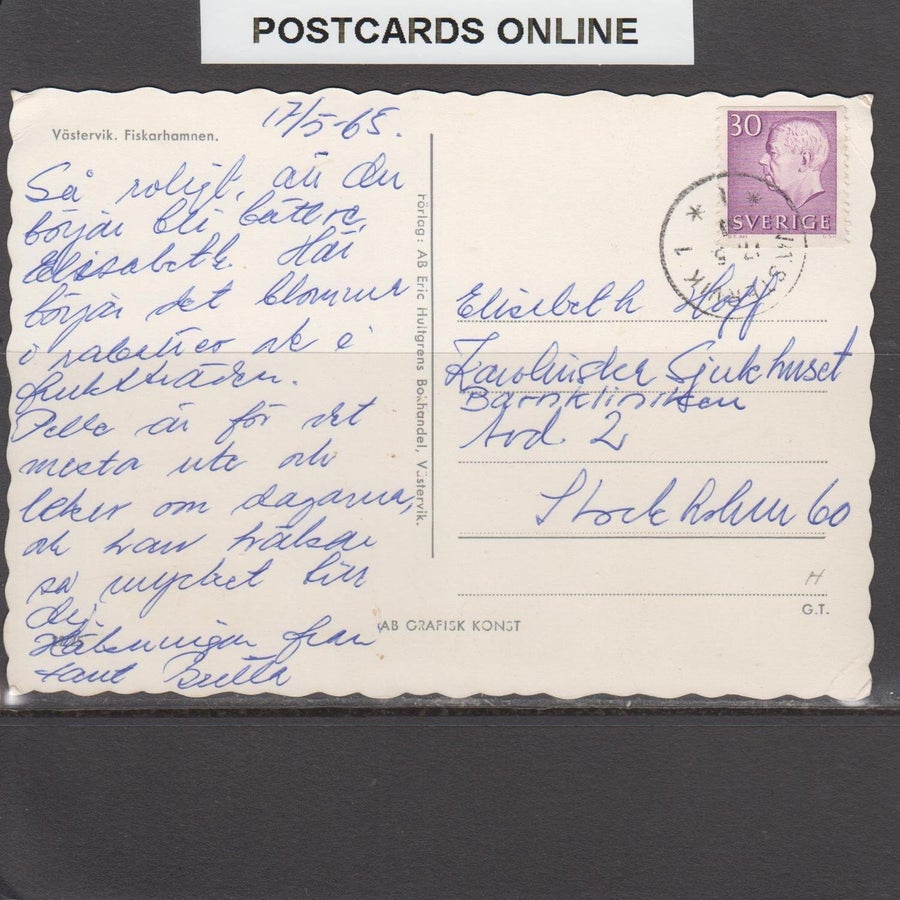 POSTCARDS ONLINE
Västervik. Fiskarhamnen.
17/5-65.
Så roligt, att du
börjar bli bättre
Elisabeth. Här
börjar det blomma
i rabatter och i
fruktträden.
Pelle är för det
mesta ute och
leker om dagarna,
och han hälsar
så mycket till
dej
Hälsningar från
tant Britta
Förlag: AB Eric Hultgrens Bokhandel, Västervik.
AB GRAFISK KONST
30
SVERIGE
VÄSTERVIK 1
Elisabeth
Karolinska Sjukhuset
Barnkliniken
Avd 2
Stockholm 60
H
G.T.